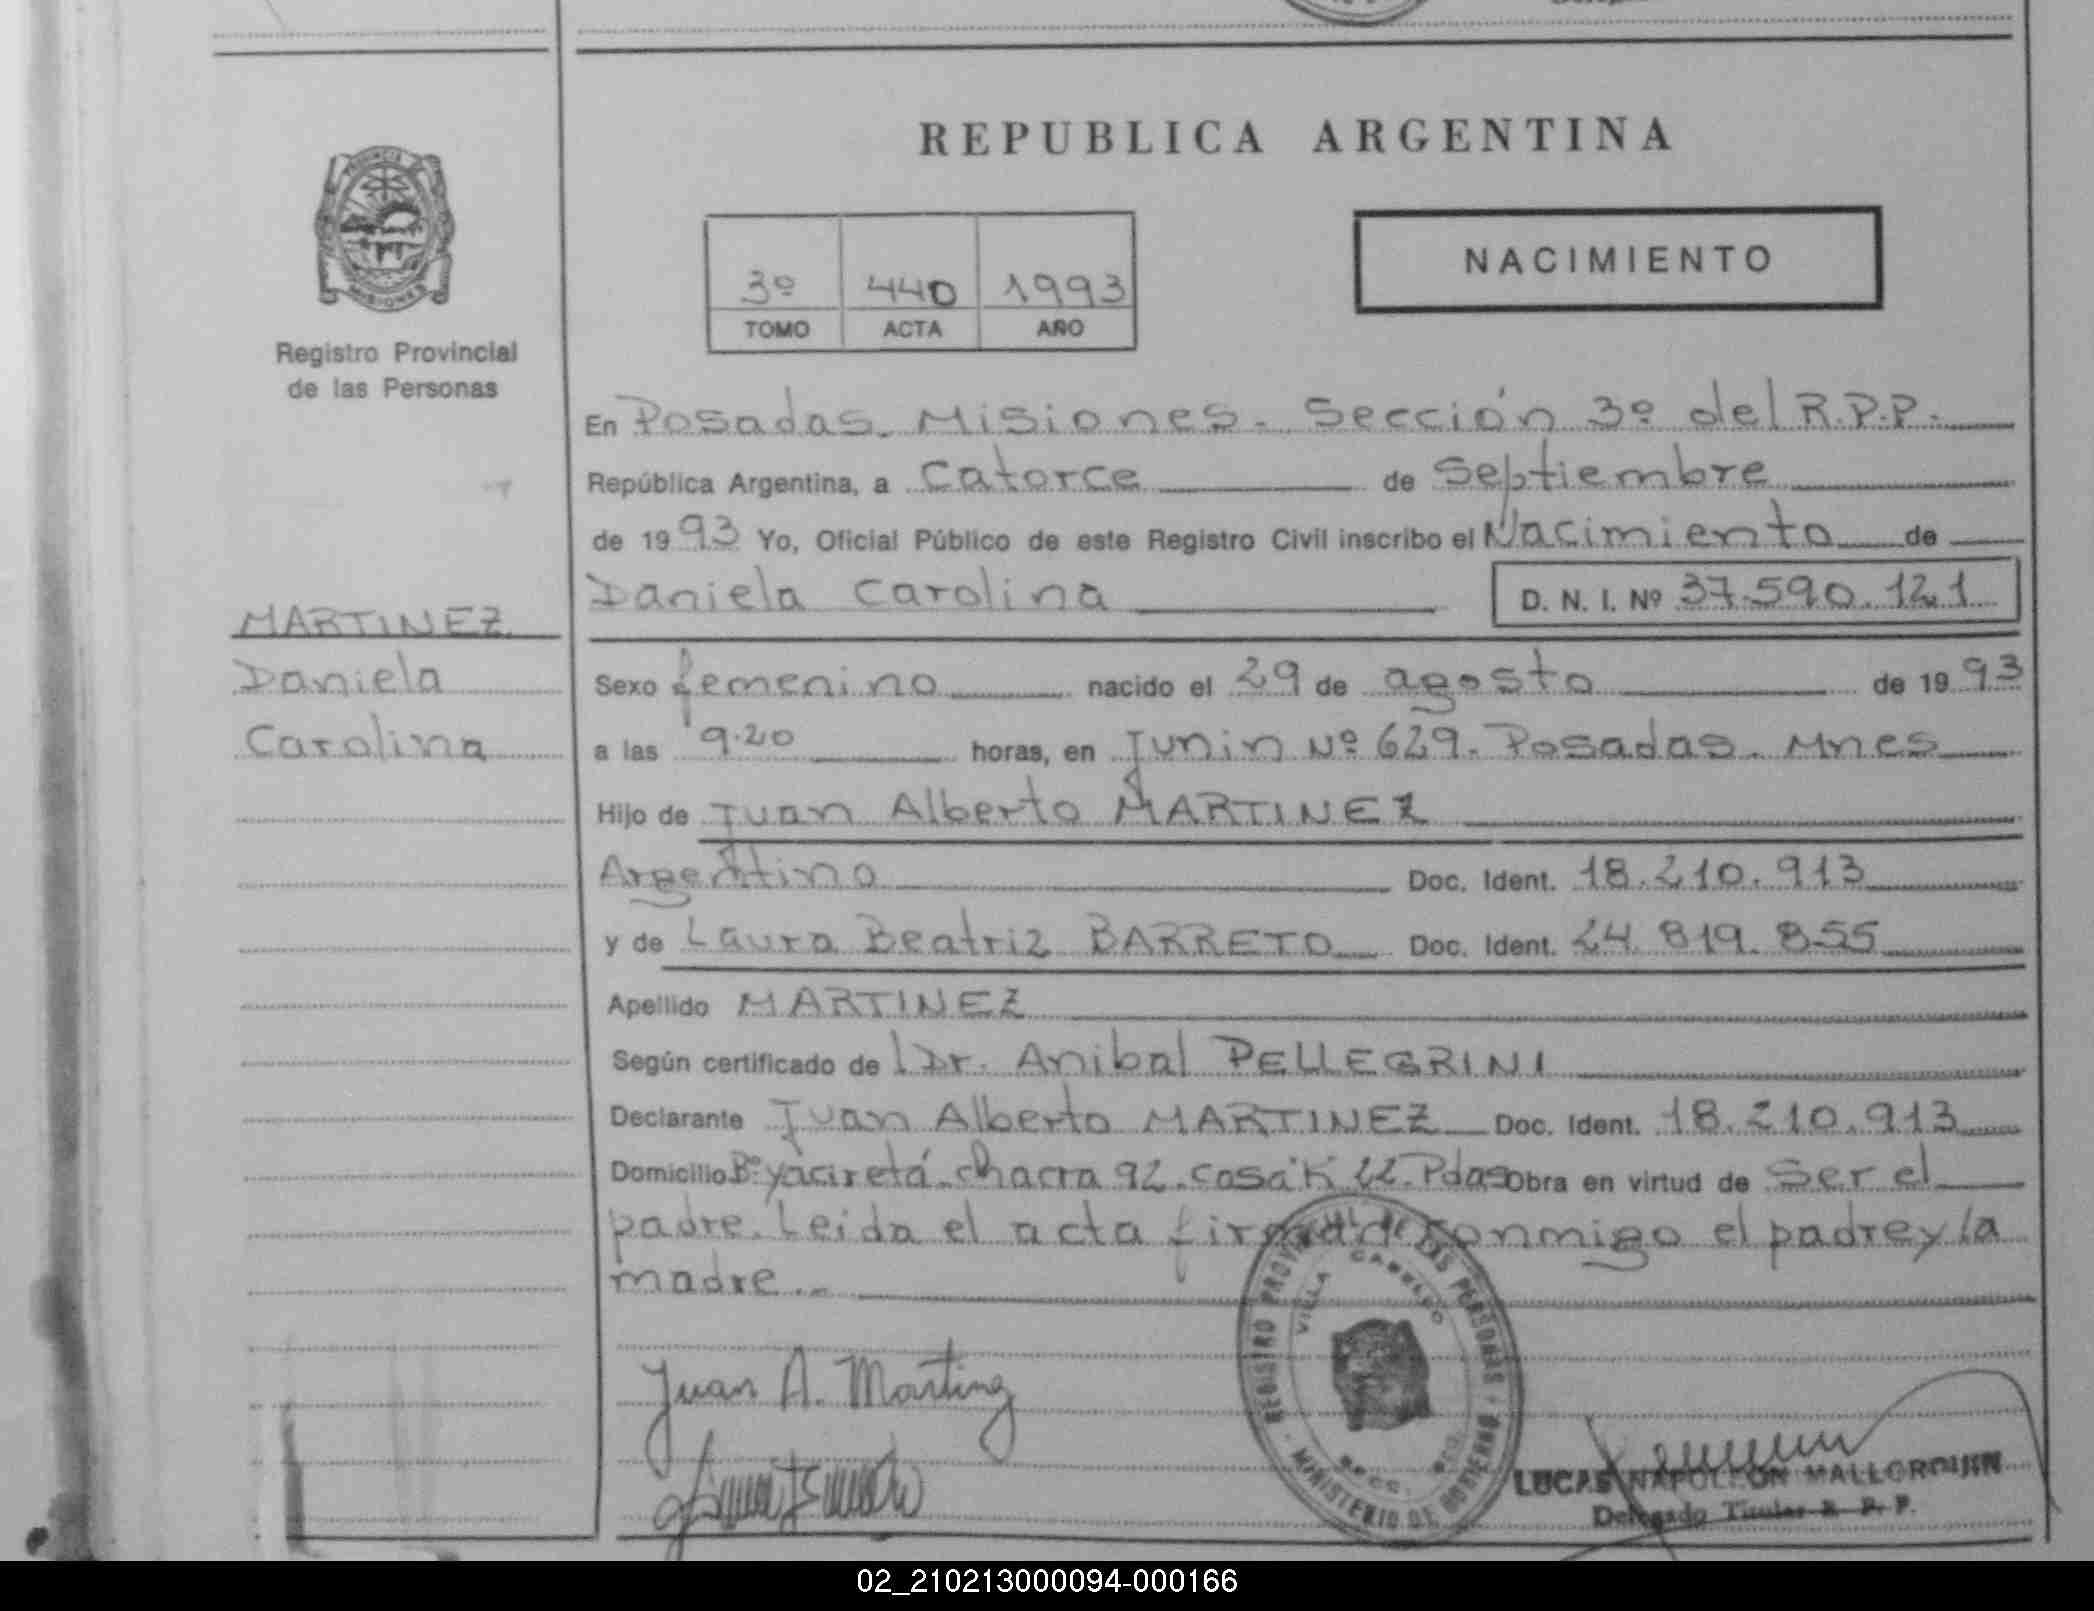 REPUBLICA ARGENTINA
PROVINCIA
MISIONES
Registro Provincial
de las Personas
3º 440 1993
TOMO ACTA AÑO
NACIMIENTO
En Posadas. Misiones. Sección 3º del R.P.P.
República Argentina, a Catorce de Septiembre
de 1993 Yo, Oficial Público de este Registro Civil inscribo el Nacimiento de
Daniela Carolina D. N. I. Nº 37.590.121
MARTINEZ
Daniela
Carolina
Sexo femenino nacido el 29 de agosto de 1993
a las 9.20 horas, en Junin Nº 629. Posadas. Mnes
Hijo de Juan Alberto MARTINEZ
Argentino Doc. Ident. 18.210.913
y de Laura Beatriz BARRETO Doc. Ident. 24.819.855
Apellido MARTINEZ
Según certificado del Dr. Anibal PELLEGRINI
Declarante Juan Alberto MARTINEZ Doc. Ident. 18.210.913
Domicilio Bº yaciretá. chacra 92. casa K 22. Pdas Obra en virtud de Ser el
padre. Leida el acta firman conmigo el padre y la
madre.-
Juan A. Martinez
REGISTRO PROVINCIAL DE LAS PERSONAS
VILLA CABELLO
SECC.
MINISTERIO DE GOBIERNO
LUCAS NAPOLEON MALLORQUIN
Delegado Titular R. P. P.
02_210213000094-000166